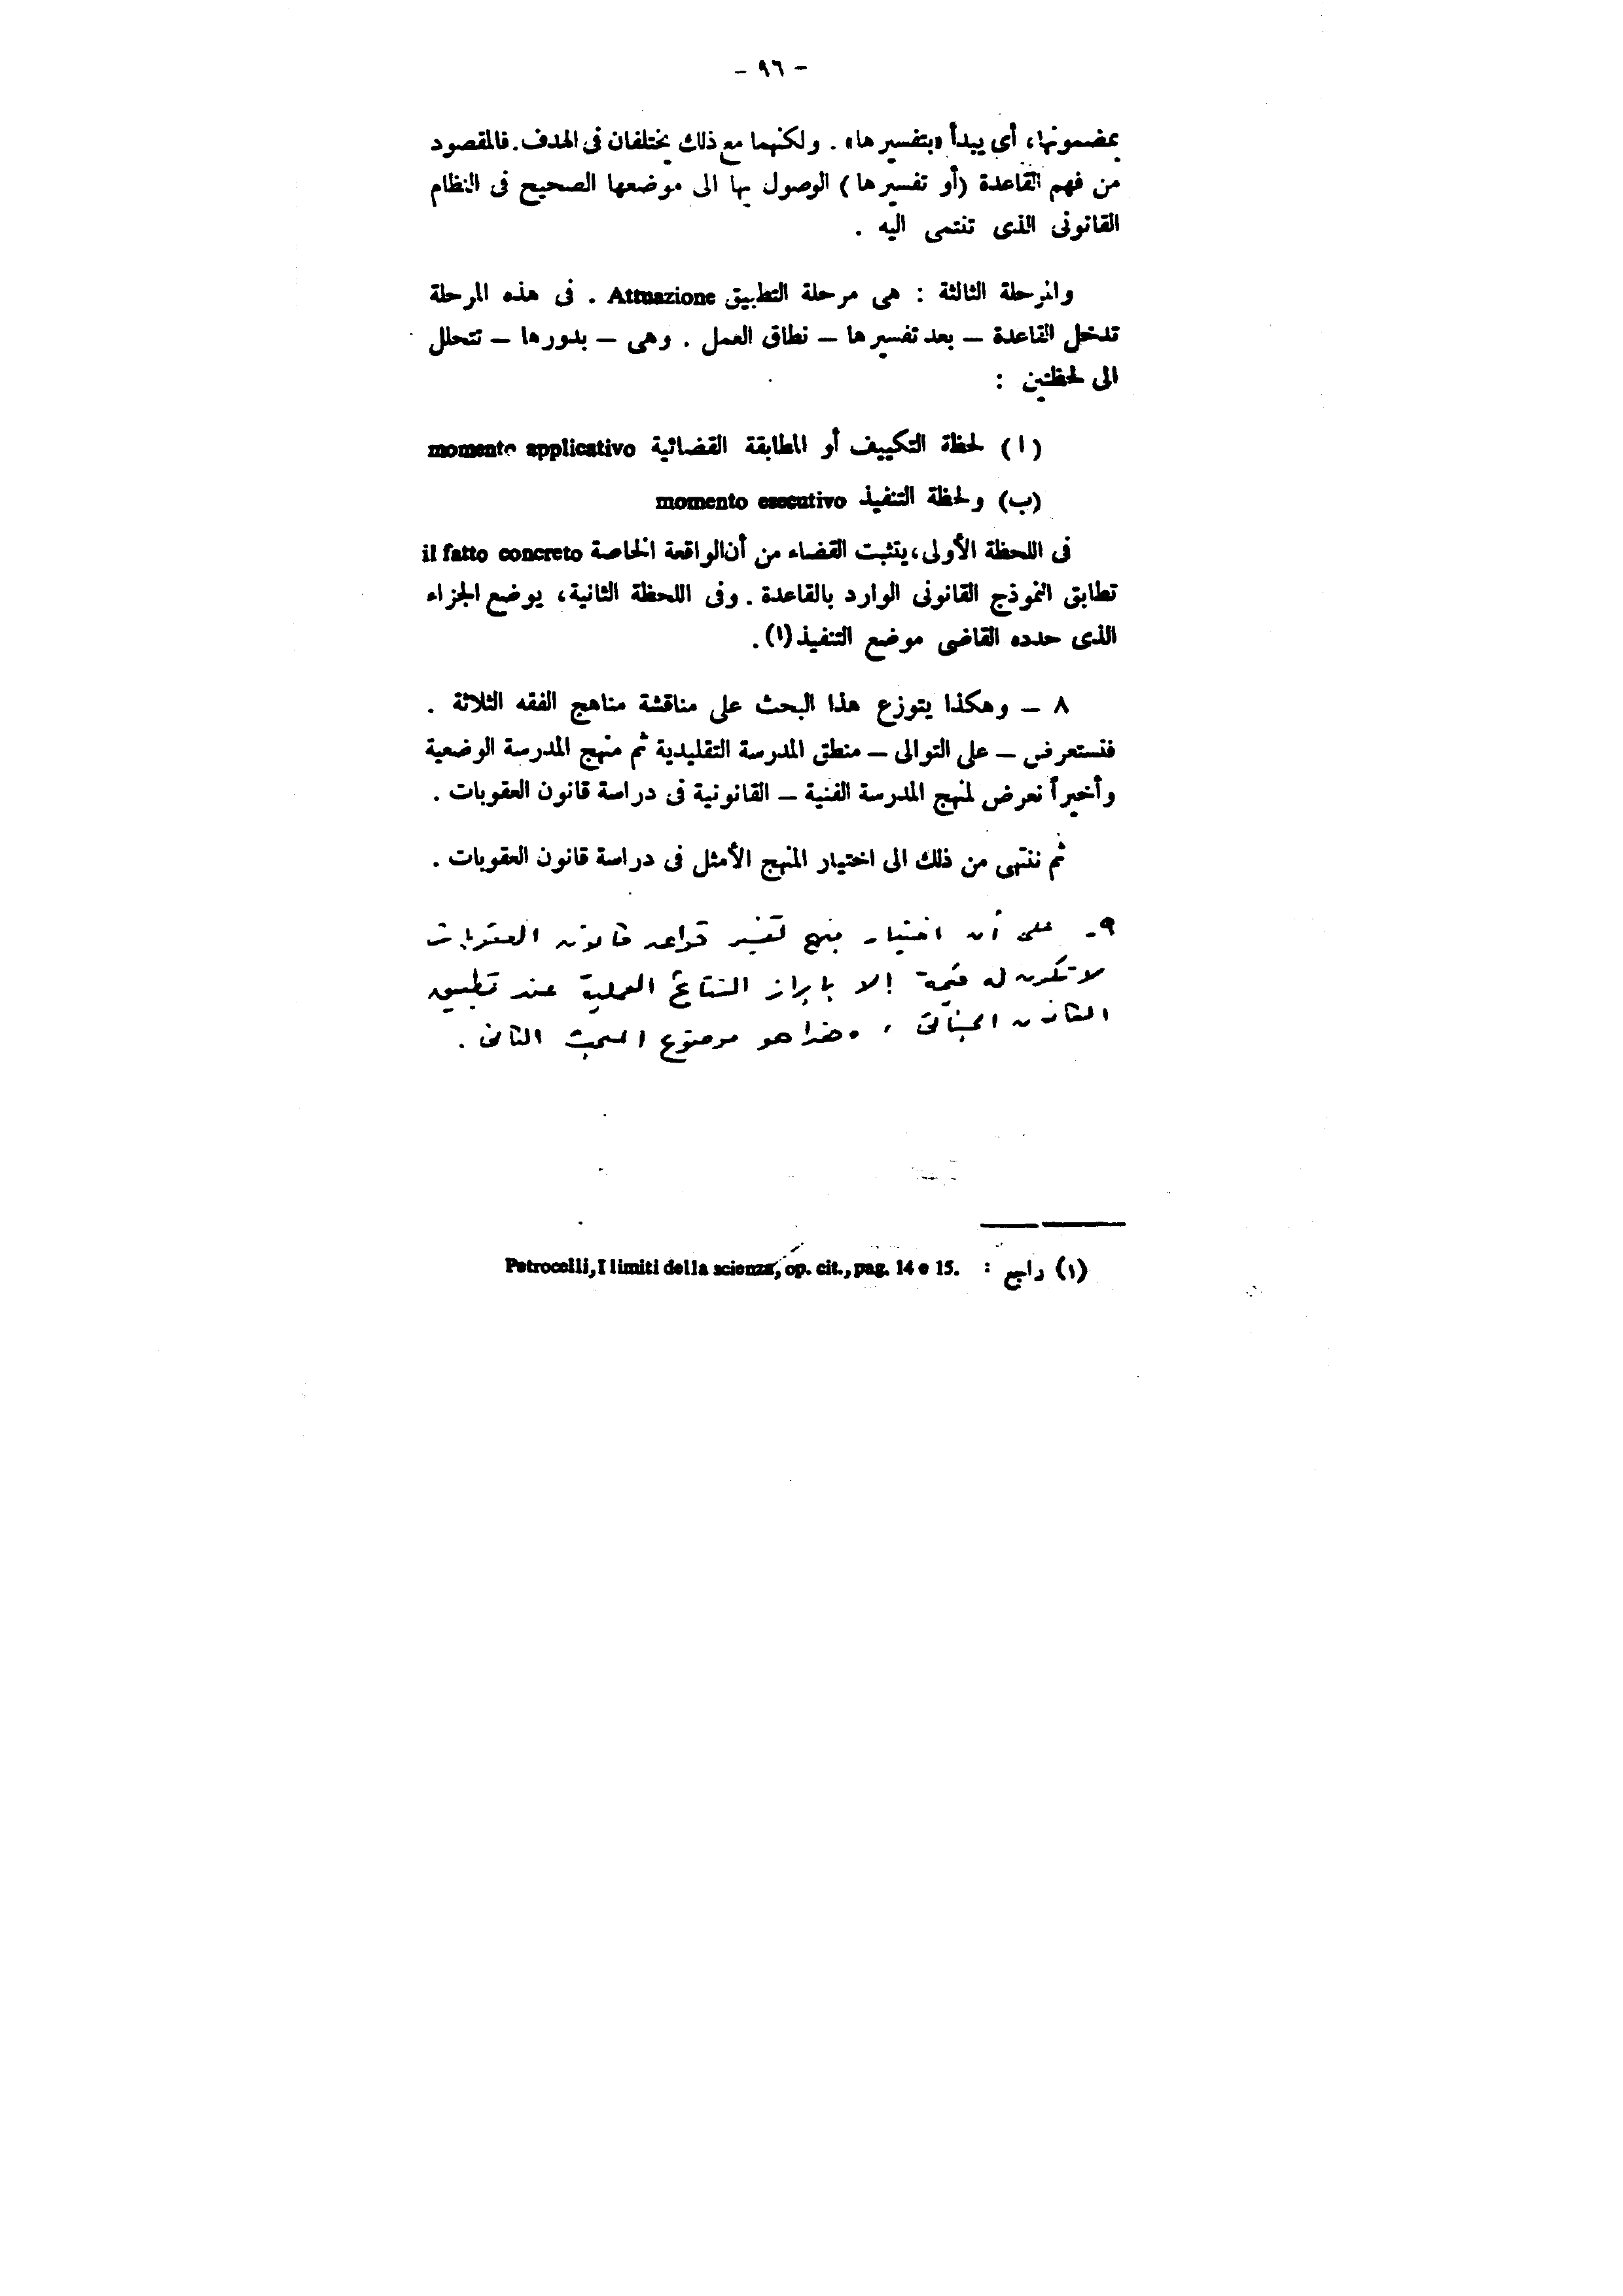 - ٩٦ -
بمضمونها، أى يبدأ «بتفسيرها». ولكنهما مع ذلك يختلفان فى الهدف. فالمقصود
من فهم القاعدة (أو تفسيرها) الوصول بها الى موضعها الصحيح فى النظام
القانونى الذى تنتمى اليه .
والمرحلة الثالثة : هى مرحلة التطبيق Attuazione . فى هذه المرحلة
تدخل القاعدة – بعد تفسيرها – نطاق العمل . وهى – بدورها – تتحلل
الى لحظتين :
(ا) لحظة التكييف أو المطابقة القضائية momento applicativo
(ب) ولحظة التنفيذ momento esecutivo
فى اللحظة الأولى، يتثبت القضاء من أن الواقعة الخاصة il fatto concreto
تطابق النموذج القانونى الوارد بالقاعدة . وفى اللحظة الثانية، يوضع الجزاء
الذى حدده القاضى موضع التنفيذ(١).
٨ – وهكذا يتوزع هذا البحث على مناقشة مناهج الفقه الثلاثة .
فنستعرض – على التوالى – منطق المدرسة التقليدية ثم منهج المدرسة الوضعية
وأخيراً نعرض لمنهج المدرسة الفنية – القانونية فى دراسة قانون العقوبات .
ثم ننتهى من ذلك الى اختيار المنهج الأمثل فى دراسة قانون العقوبات .
٩- على أن اختيار منهج تفسير قواعد قانون العقوبات
لا تكون له قيمة إلا بإبراز النتائج العملية عند تطبيق
القانون الجنائى ، وهذا هو موضوع المبحث الثانى .
(١) راجع : Petrocelli, I limiti della scienza, op. cit., pag. 14 e 15.